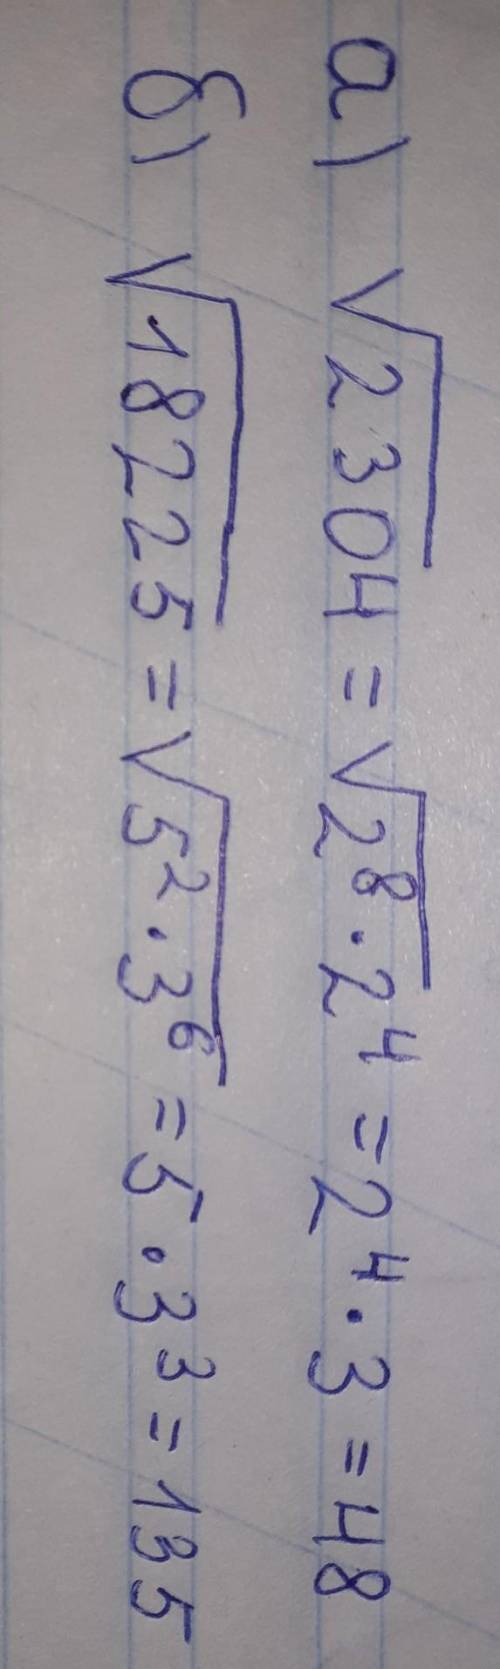 а) √2304 = √2⁸ · 2⁴ = 2⁴ · 3 = 48
б) √18225 = √5² · 3⁶ = 5 · 3³ = 135